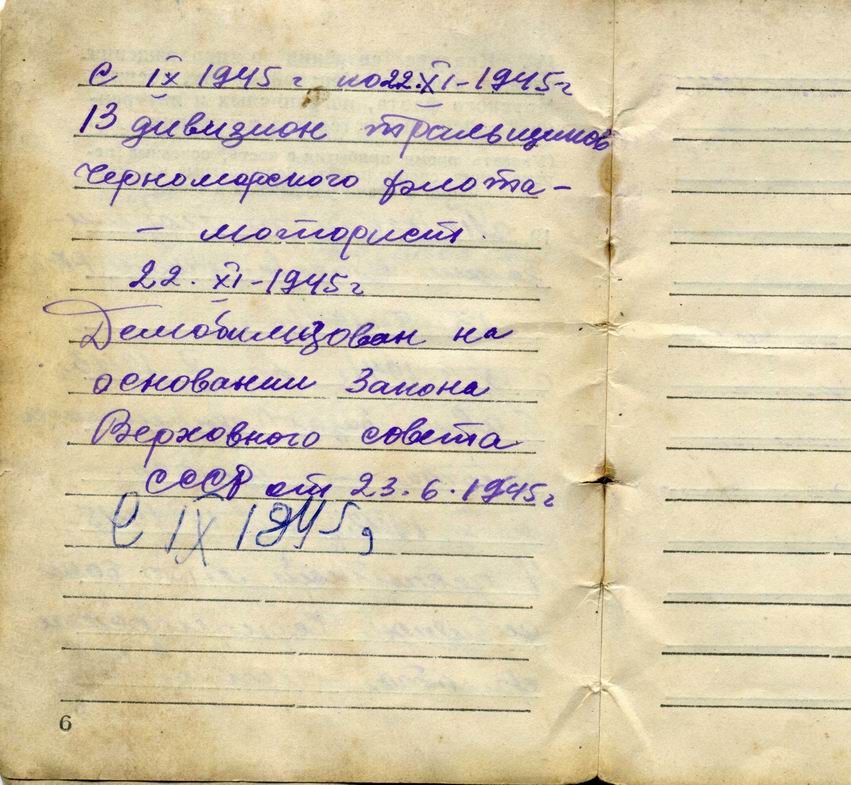 с IX 1945 г по 22.XI-1945г
13 дивизион тральщиков
черноморского флота-
- моторист.
22.XI-1945г
Демобилизован на
основании Закона
Верховного совета
СССР от 23.6.1945г
С IX 1945г
6